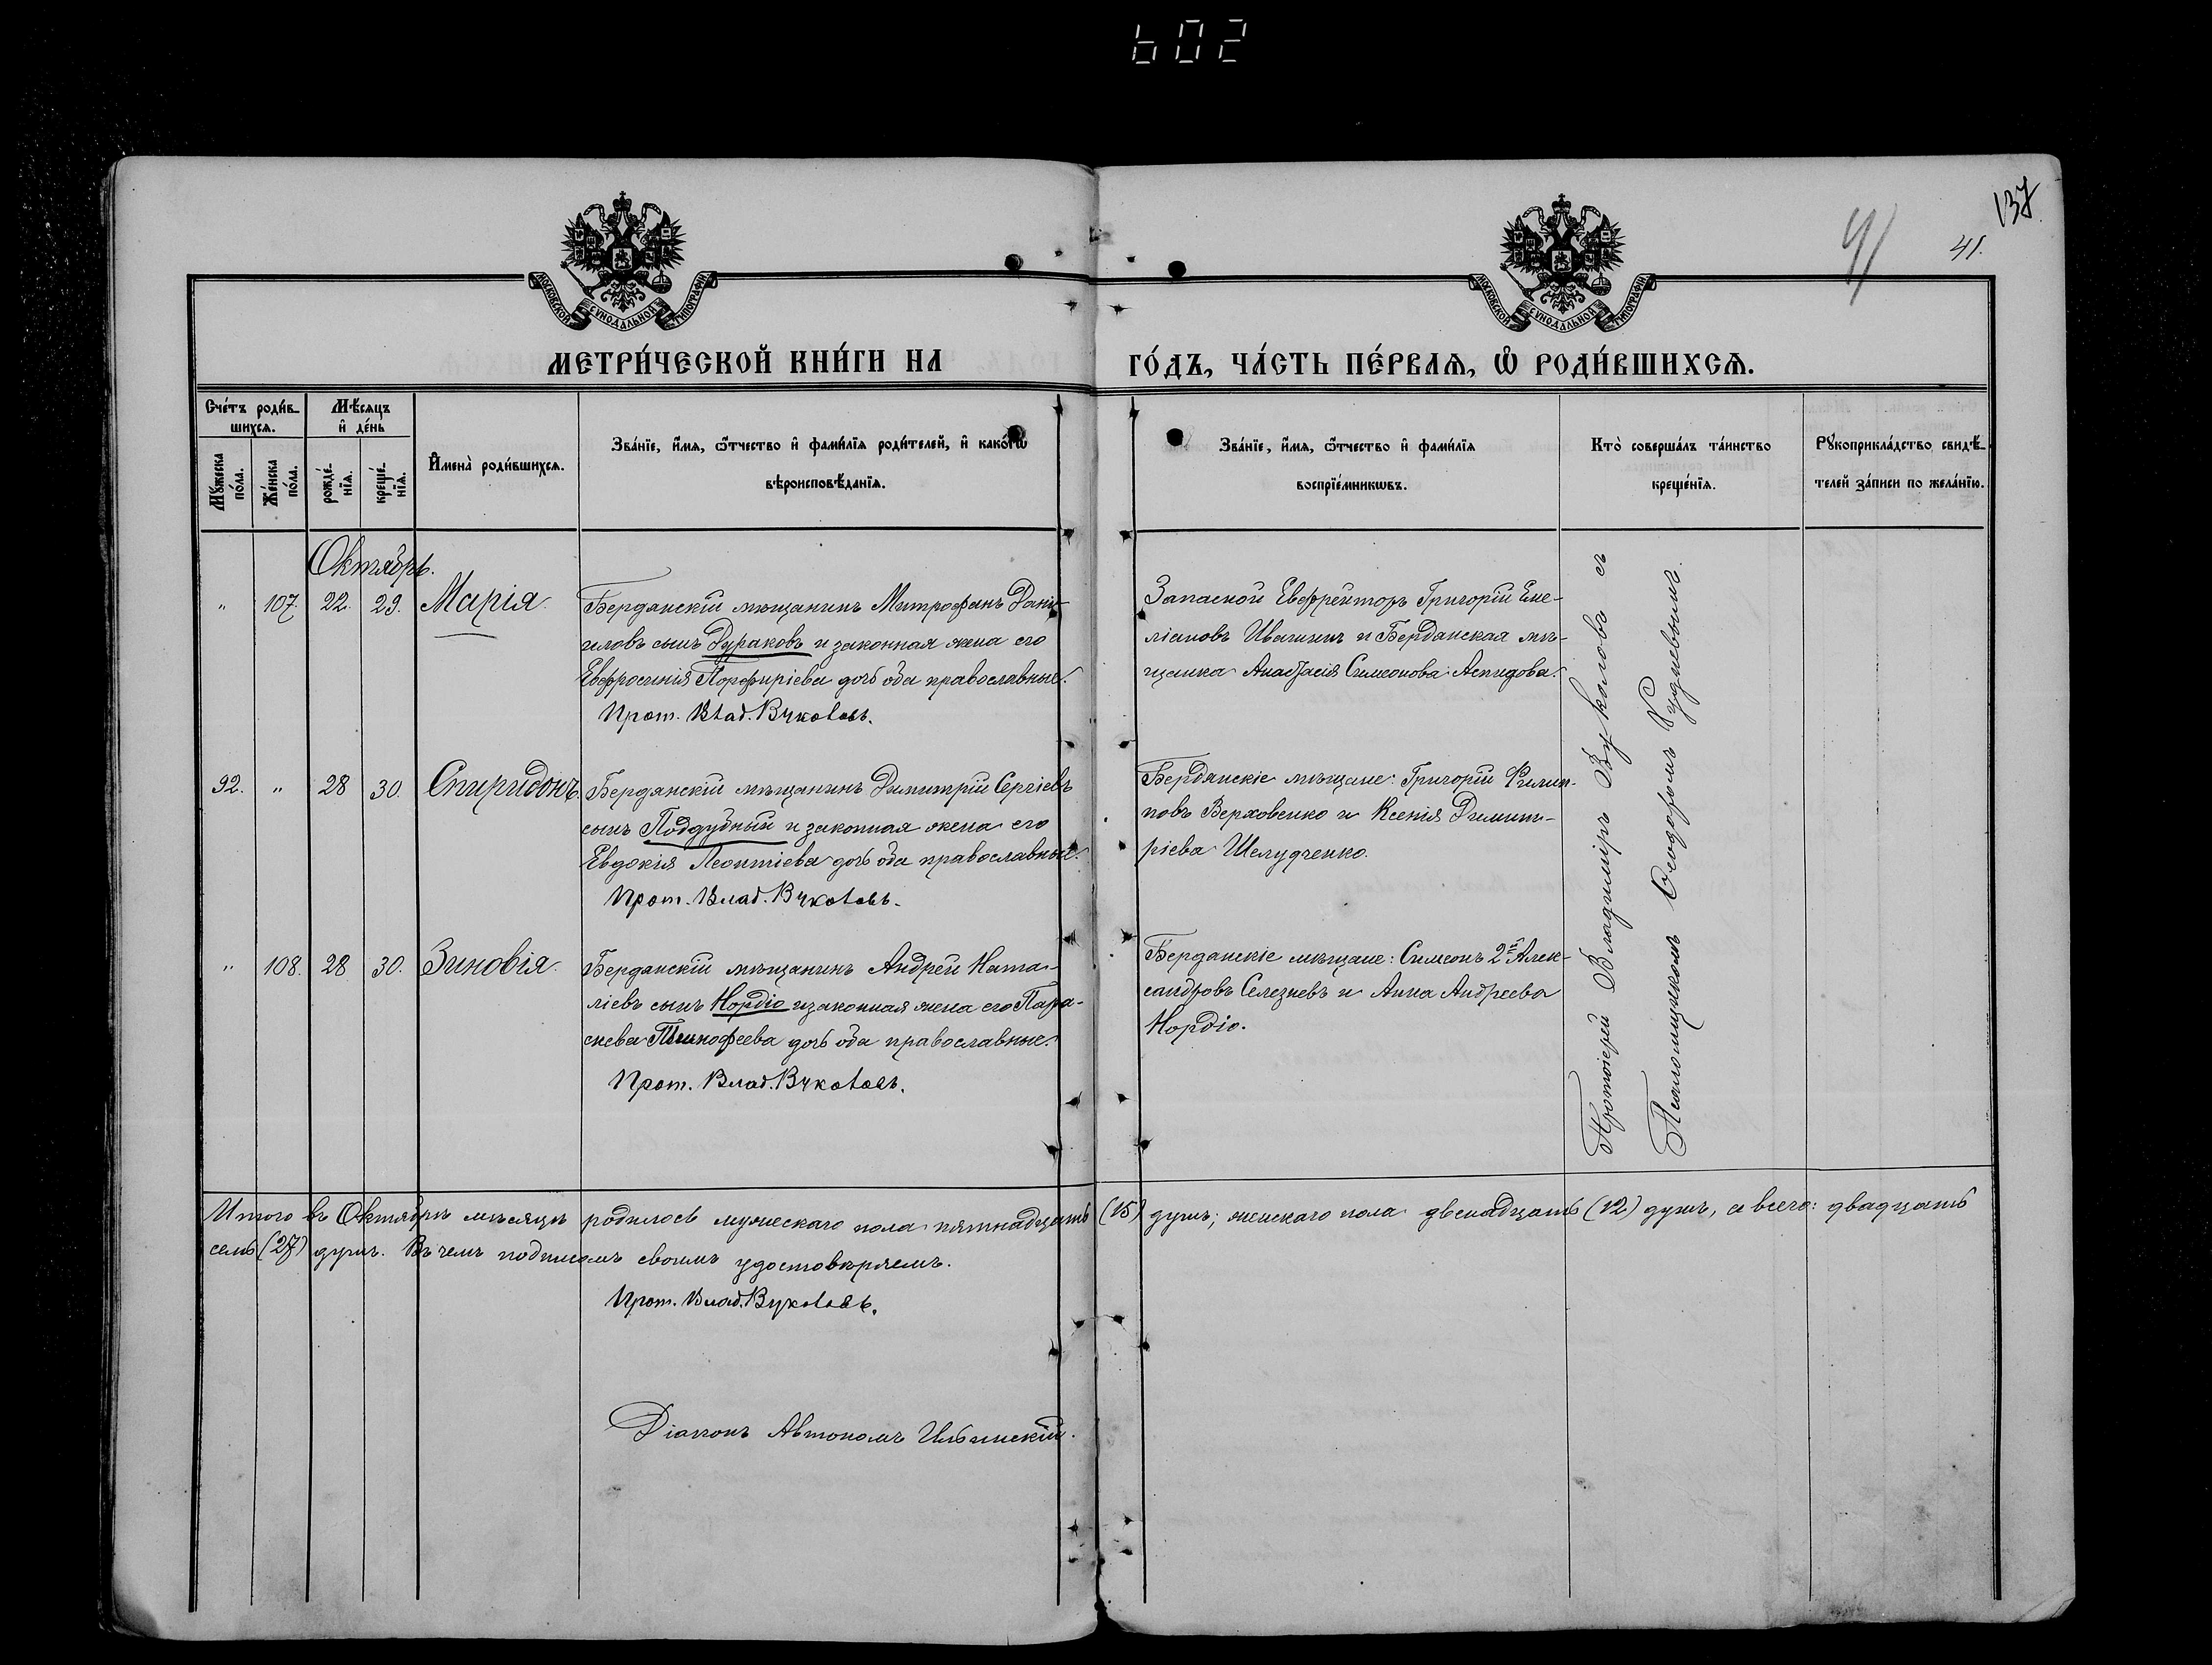 602
137
41
41.
МОСКОВСКОЙ СУНОДАЛЬНОЙ ТИПОГРАФІИ
МОСКОВСКОЙ СУНОДАЛЬНОЙ ТИПОГРАФІИ
МЕТРИ́ЧЕСКОЙ КНИ́ГИ НА
ГО́ДЪ, ЧА́СТЬ ПЕ́РВАѦ, Ѡ҆ РОДИ́ВШИХСѦ.
Сче́тъ роди́в-
шихсѧ.
Мѣ́сѧцъ
и҆ де́нь
Мꙋ́жеска
по́ла.
Же́нска
по́ла.
рожде́-
нїѧ.
креще́-
нїѧ.
И҆мена̀ роди́вшихсѧ.
Зва́нїе, и҆́мѧ, ѻ҆́тчество и҆ фами́лїѧ роди́телей, и҆ како́гѡ
вѣроисповѣ́данїѧ.
Зва́нїе, и҆́мѧ, ѻ҆́тчество и҆ фами́лїѧ
воспрїе́мникѡвъ.
Кто̀ соверша́лъ та́инство
креще́нїѧ.
Рꙋкоприкла́дство свидѣ́-
телей за́писи по жела́нїю.
Октябрь.
" 107. 22. 29. Марія.
Бердянскій мѣщанинъ Митрофанъ Дани-
иловъ сынъ Дураковъ и законная жена его
Евфросинія Порфиріева дочь оба православные.
Прот. Влад. Вуколовъ.
Запасной Ефрейторъ Григорій Еме-
ліановъ Ивашинъ и Бердянская мѣ-
щанка Анастасія Симеонова Аспидова.
92. " 28 30. Спиридонъ.
Бердянскій мѣщанинъ Димитрій Сергіевъ
сынъ Поддубный и законная жена его
Евдокія Леонтіева дочь оба православные.
Прот. Влад. Вуколовъ.
Бердянскіе мѣщане: Григорій Филип-
повъ Верховенко и Ксенія Димит-
ріева Шелудченко.
" 108. 28 30. Зиновія.
Бердянскій мѣщанинъ Андрей Ната-
ліевъ сынъ Нордіо и законная жена его Пара-
скева Тимофеева дочь оба православные.
Прот. Влад. Вуколовъ.
Бердянскіе мѣщане: Симеонъ 2й Алек-
сандровъ Селезневъ и Анна Андреева
Нордіо.
Протоіерей Владимиръ Вуколовъ съ
Псаломщикомъ Ѳеодоромъ
Итого въ Октябрѣ мѣсяцѣ родилось мужескаго пола пятнадцать (15) душъ; женскаго пола двенадцать (12) душъ, а всего: двадцать
семь (27) душъ. Въ чемъ подписомъ своимъ удостовѣряемъ.
Прот. Влад. Вуколовъ.
Діаконъ Автономъ Ильинскій.